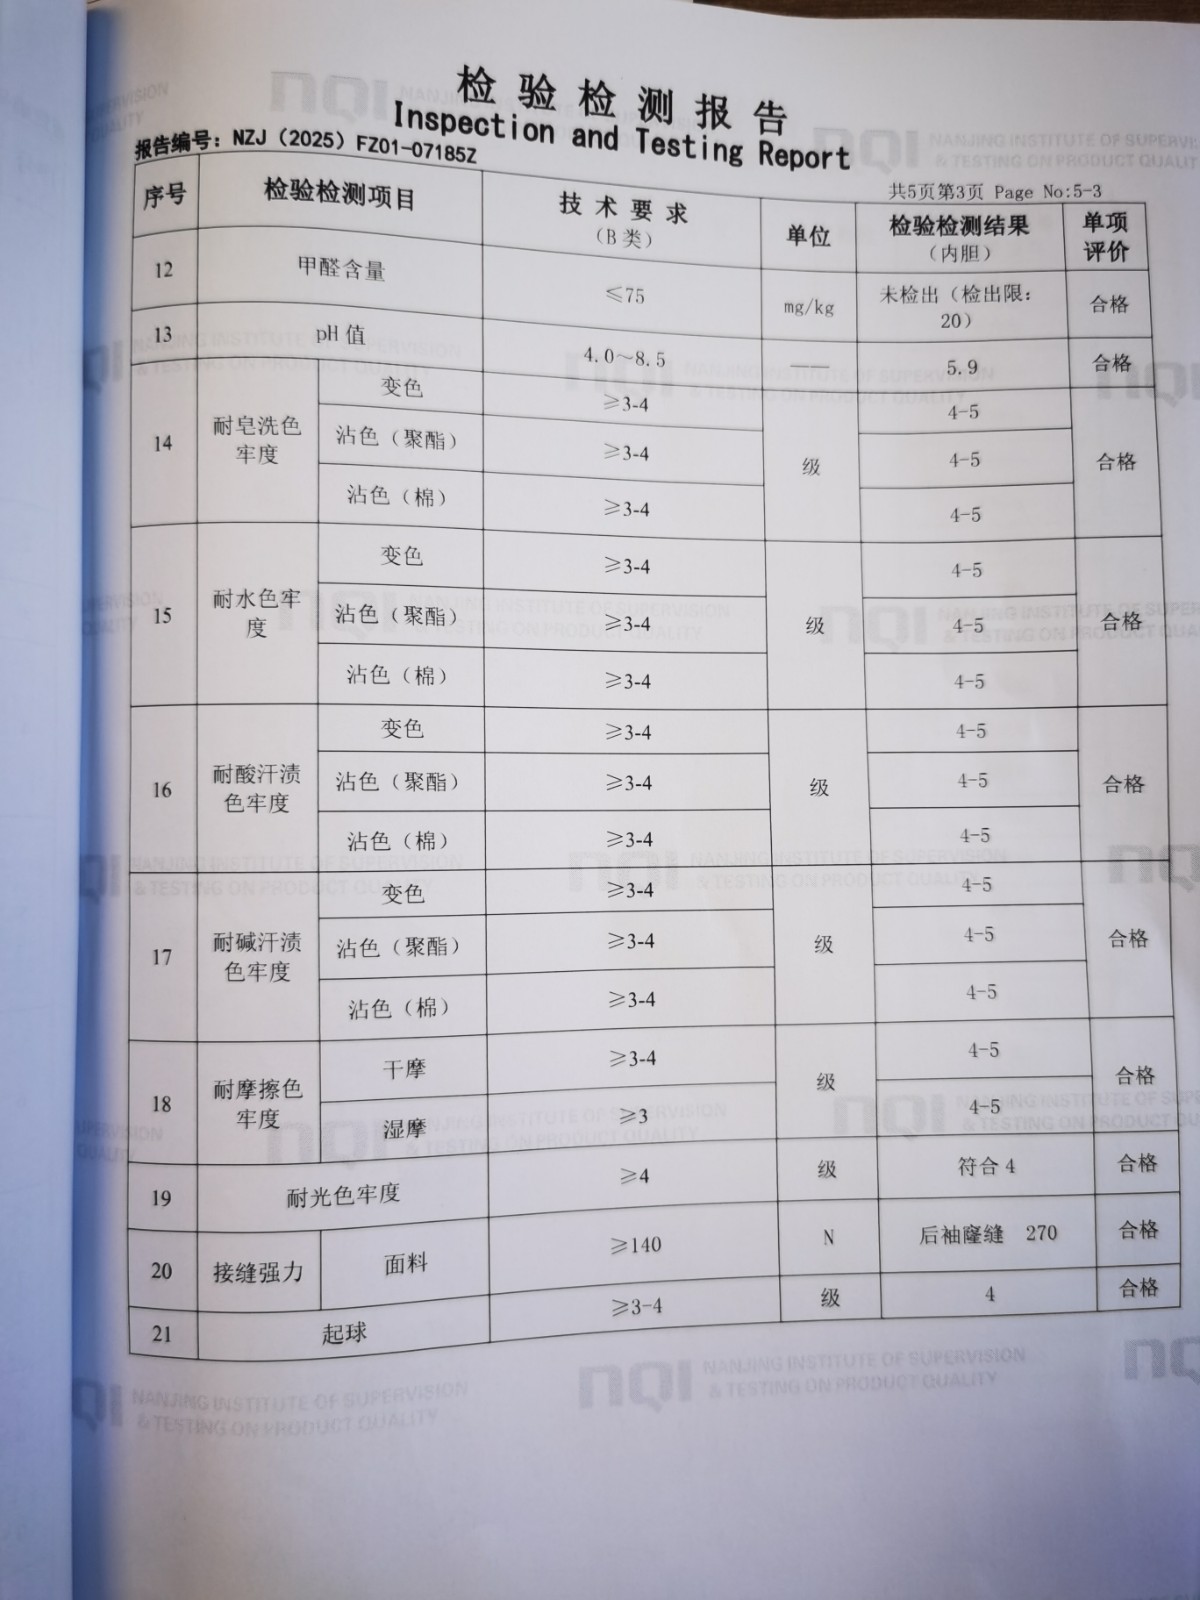 检验检测报告
Inspection and Testing Report
报告编号：NZJ（2025）FZ01-07185Z
共5页第3页 Page No:5-3
序号 检验检测项目 技术要求（B类） 单位 检验检测结果（内胆） 单项评价
12 甲醛含量 ≤75 mg/kg 未检出（检出限：20） 合格
13 pH值 4.0～8.5 —— 5.9 合格
14 耐皂洗色牢度 变色 ≥3-4 级 4-5 合格
沾色（聚酯） ≥3-4 4-5
沾色（棉） ≥3-4 4-5
15 耐水色牢度 变色 ≥3-4 级 4-5 合格
沾色（聚酯） ≥3-4 4-5
沾色（棉） ≥3-4 4-5
16 耐酸汗渍色牢度 变色 ≥3-4 级 4-5 合格
沾色（聚酯） ≥3-4 4-5
沾色（棉） ≥3-4 4-5
17 耐碱汗渍色牢度 变色 ≥3-4 级 4-5 合格
沾色（聚酯） ≥3-4 4-5
沾色（棉） ≥3-4 4-5
18 耐摩擦色牢度 干摩 ≥3-4 级 4-5 合格
湿摩 ≥3 4-5
19 耐光色牢度 ≥4 级 符合4 合格
20 接缝强力 面料 ≥140 N 后袖窿缝 270 合格
21 起球 ≥3-4 级 4 合格
NQI NANJING INSTITUTE OF SUPERVISION
& TESTING ON PRODUCT QUALITY